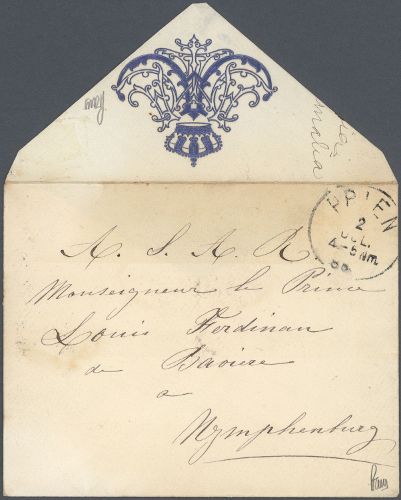 PRIEN
2
JUL.
4-5 Nm.
A. S. A. R
Monseigneur le Prince
Louis Ferdinan
de Baviere
a
Nymphenburg